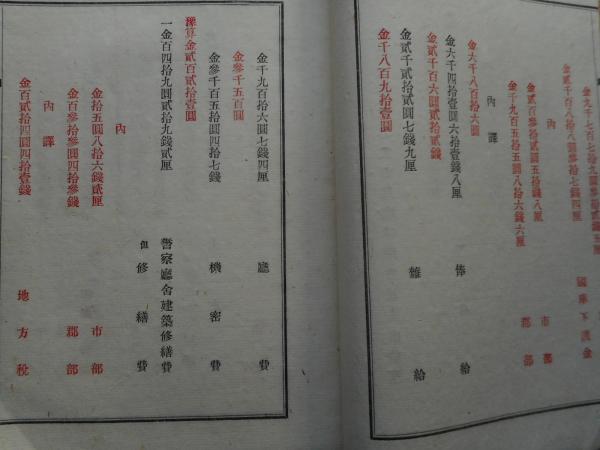 金九千百七拾九圓參拾貳錢五厘
金貳千百八拾八圓參拾七錢四厘 國庫下渡金
內
金貳百參拾貳圓五拾錢八厘 市部
金千九百五拾五圓八拾六錢六厘 郡部
內譯
金六千八百拾六圓
金六千四拾壹圓六拾壹錢八厘 俸給
金貳千百六圓貳拾貳錢
金貳千貳拾貳圓七錢九厘 雜給
金千八百九拾壹圓
金千九百拾六圓七錢四厘 廳費
金參千五百圓
金參千百五拾圓四拾七錢 機密費
豫算金貳百貳拾壹圓
一金百四拾九圓貳拾九錢貳厘 警察廳舍建築修繕費
但修繕費
內
金拾五圓八拾六錢貳厘 市部
金百參拾參圓四拾參錢 郡部
內譯
金百貳拾四圓四拾壹錢 地方稅